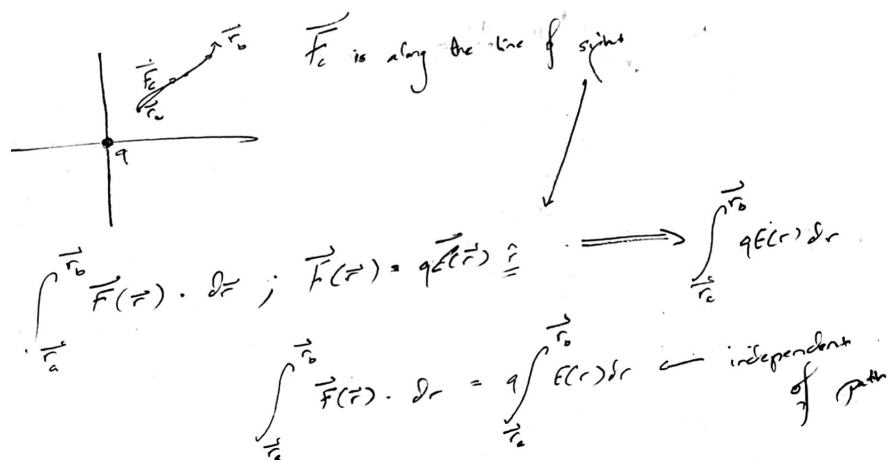 $\vec{r_b}$
$\vec{F_c}$ is along the line of sight
$\vec{F_c}$
$\vec{r_a}$
q
$\int_{\vec{r_a}}^{\vec{r_b}} \vec{F}(\vec{r}) \cdot d\vec{r}$ ; $\vec{F}(\vec{r}) = q\vec{E}(\vec{r}) \hat{r}$ $\Longrightarrow$ $\int_{\vec{r_a}}^{\vec{r_b}} qE(r) dr$
$\int_{\vec{r_a}}^{\vec{r_b}} \vec{F}(\vec{r}) \cdot dr = q \int_{\vec{r_a}}^{\vec{r_b}} E(r) dr$ ← independent
of path